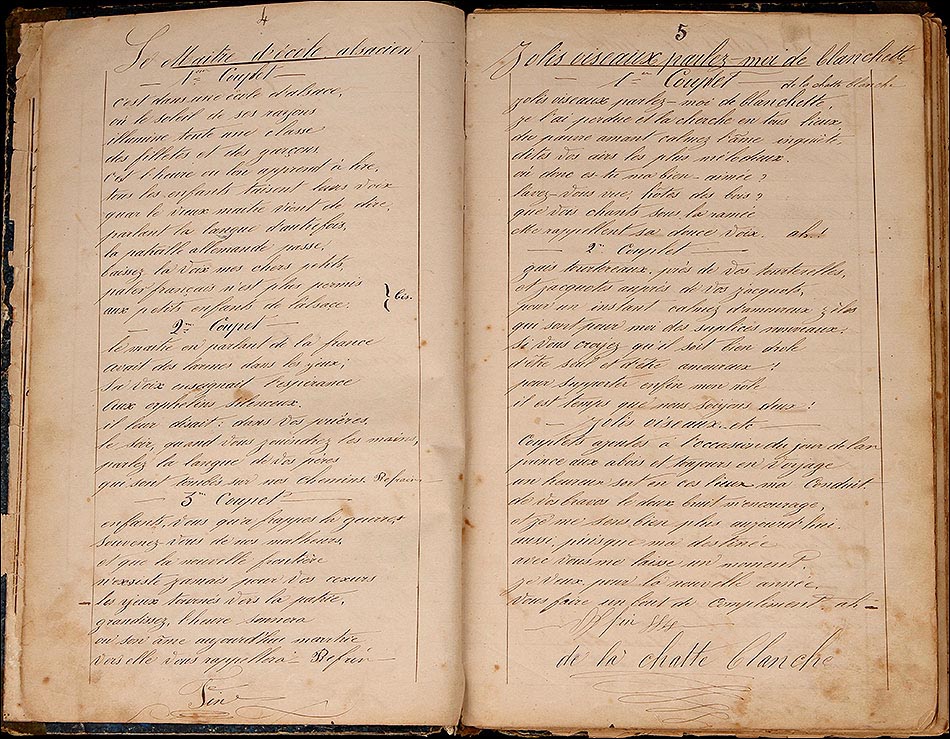 4
Le Maître d'école alsacien
1er Couplet
c'est dans une école d'alsace,
où le soleil de ses rayons
illumine toute une classe
des fillettes et des garçons
c'est l'heure ou l'on apprend à lire,
tous les enfants taisent leurs voix
quar le vieux maitre vient de dire,
parlant la langue d'autrefois,
la patrouille allemande passe,
baissez la voix mes chers petits,
parler français n'est plus permis
aux petits enfants de l'alsace.
} bis.
2me Couplet
le maitre en parlant de la france
avait des larmes dans les yeux;
sa voix ensegnait l'espérance
aux orphelins silencieux.
il leur disait: dans vos prières,
le soir, quand vous joindrez les mains,
parlez la langue de vos pères
qui sont tombés sur nos chemins. Refrain
3me Couplet
enfants, vous qu'a frappés la guerre,
souvenez-vous de nos malheurs,
et que la nouvelle frontière
n'exsiste jamais pour vos cœurs
les yeux tournés vers la patrie,
grandissez, l'heure sonnera
ou son âme aujourd'hui meurtrie
vers elle vous rappellera Refrain
Fin
5
Jolis oiseaux parlez-moi de blanchette
1er Couplet
de la chatte blanche
jolis oiseaux parlez-moi de blanchette,
je l'ai perdue et la cherche en tous lieux
du pauvre amant calmez l'âme inquiète,
dites vos airs les plus mélodieux.
où donc es-tu ma bien-aimée?
l'avez-vous vue, hôtes des bois?
que vos chants sous la ramée
me rappellent sa douce voix. ah!
2me Couplet
guis tourtereaux, près de vos tourterelles,
et jacquotes auprès de vos jacquots,
pour un instant calmez d'amoureux zèles
qui sont pour moi des suplices nouveaux.
si vous croyez qu'il soit bien drole
d'être seul et d'être amoureux!
pour supporter enfin mon role
il est temps que nous soyons deux!
Jolis oiseaux. etc
Couplets ajoutés à l'occasion du jour de l'an
prince aux abois et toujours en voyage
un heureux sort en ces lieux ma conduit
de vos bravos le doux bruit m'encourage,
et je me sens bien plus aujourd'hui.
aussi, puisque ma destinée
avec vous me laisse un moment.
je veux, pour la nouvelle année,
vous faire un bout de compliment. ah
fin
de la chatte blanche